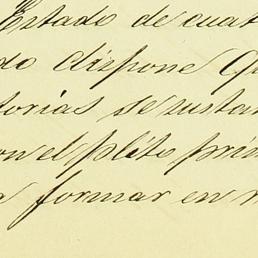 Estado de cuat
do dispone Qu
torias se sustan
on el plito prin
a formar en r